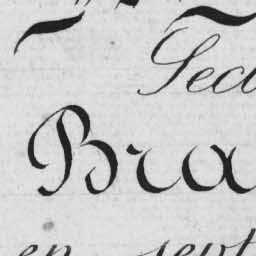 Sec
Bra
en sept